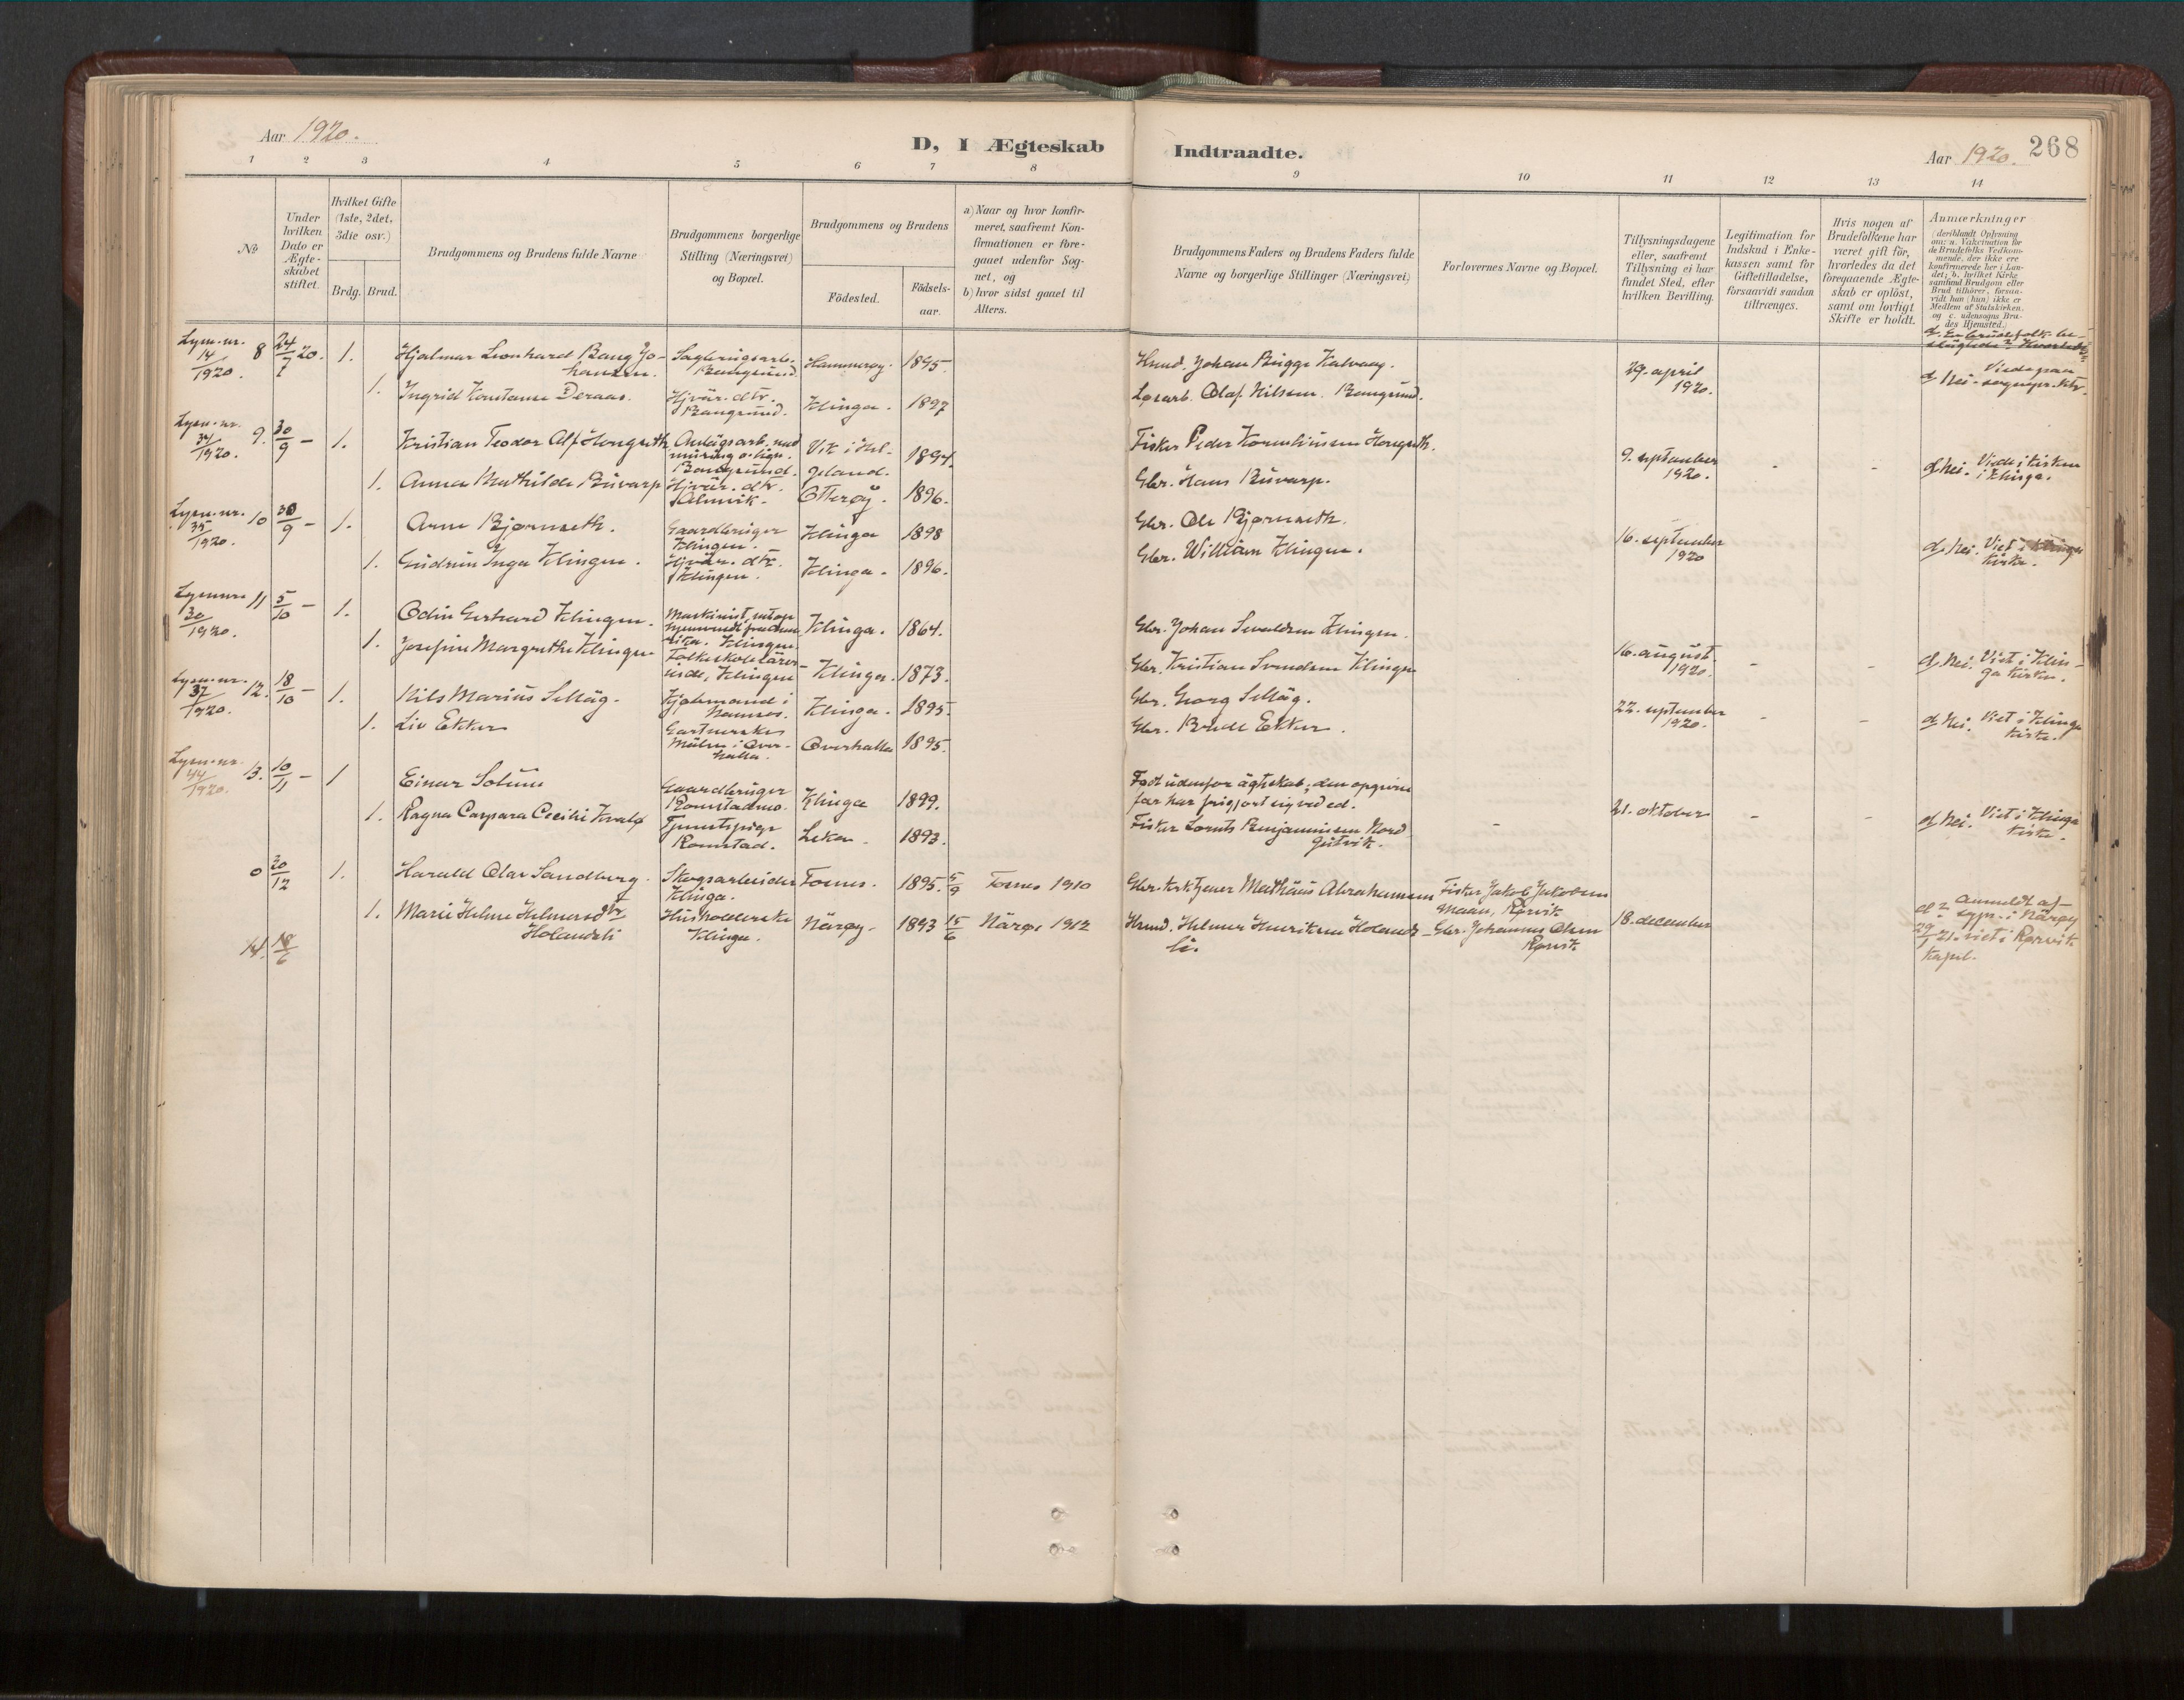 Aar 1920.
D, I Ægteskab
Indtraadte.
Aar 1920.
268
1 2 3 4 5 6 7 8 9 10 11 12 13 14
No
Under hvilken Dato er Ægte-skabet stiftet.
Hvilket Gifte (1ste, 2det, 3die osv.)
Brdg. Brud.
Brudgommens og Brudens fulde Navne
Brudgommens borgerlige Stilling (Næringsvei) og Bopæl.
Brudgommens og Brudens
Födested.
Födsels-aar.
a) Naar og hvor konfir-meret, saafremt Kon-firmationen er fore-gaaet udenfor Sog-net, og
b) hvor sidst gaaet til Alters.
Brudgommens Faders og Brudens Faders fulde Navne og borgerlige Stillinger (Næringsvei)
Forlovernes Navne og Bopæl.
Tillysningsdagene eller, saafremt Tillysning ei har fundet Sted, efter hvilken Bevilling.
Legitimation for Indskud i Enke-kassen samt for Giftetilladelse, forsaavidt saadan tiltrænges.
Hvis nogen af Brudefolkene har været gift för, hvorledes da det foregaaende Ægte-skab er oplöst, samt om lovligt Skifte er holdt.
Anmærkninger (deriblandt Oplysning om: a. Vakcination for de Brudefolks Vedkom-mende, der ikke ere konfirmerede her i Lan-det; b. hvilket Kirke-samfund Brudgom eller Brud tilhörer, forsaa-vidt han (hun) ikke er Medlem af Statskirken, og c. udensogns Bru-des Hjemsted.)
Lysn. nr. 14/1920. 8 24/7 20. 1. Hjalmar Leonhard Bang Jo-hansen. Sagbrugsarb. Bangsund. Hammerøy. 1895. Hmd. Johan Brigge Kalvaag. 29. april 1920. d. Nei. Viede paa sognepr. ktr.
1. Ingrid Konstanse Deraas. Hjvär. dtr. Bangsund. Klinga. 1897 Løsarb. Olaf Nilssen. Bangsund.
Lysn. nr. 34/1920. 9. 30/9 - 1. Kristian Teodor Alf Hongseth Anlägsarb. med muring o. lign. Bangsund. Vik i Hel-geland. 1894. Fisker Peder Korneliussen Hongseth. 9. september 1920. - - d. Nei. Viede i kirken i Klinga.
1. Anna Mathilde Buvarp Hjvär. dtr. Alnvik. Otterøy. 1896. Gbr. Hans Buvarp.
Lysn. nr. 35/1920. 10 30/9 - 1. Arne Bjørnseth. Gaardbruger Klingen. Klinga 1898 Gbr. Ole Bjørnseth. 16. september 1920 d. Nei. Viet i Klinga kirke.
1. Gudrun Inga Klingen. Hjvär. dtr. Klingen. Klinga. 1896. Gbr. William Klingen.
Lysn nr. 30/1920. 11 5/10 - 1. Odin Gerhard Klingen. Maskinist, netop hjemvendt fra Ame-rika. Klingen. Klinga. 1864. Gbr. Johan Sivaldsen Klingen. 16. august 1920. - - d. Nei. Viet i Klin-ga kirke.
1. Josefine Margrethe Klingen Folkeskolelärer-inde, Klingen Klinga. 1873. Gbr. Kristian Svendsen Klingen
Lysn. nr. 37/1920. 12. 18/10 - 1. Nils Marius Selläg. Hjälpmand i Namsos. Klinga. 1895. Gbr. Georg Selläg. 22. september 1920. - - d. Nei. Viet i Klinga kirke.
1. Liv Ekker Gartnerske Mälen i Over-halla. Overhalla 1895. Gbr. Bredl Ekker.
Lysn. nr. 44/1920. 13. 10/11 - 1 Einar Solum Gaardbruger Romstadmo. Klinga 1899. Født udenfor ägteskab; den opgivne far har frigjort sig ved ed. - 21. oktober - - d. Nei. Viet i Klinga kirke.
1. Ragna Caspara Cecilie Kvalø Tjenestepige Romstad. Leka. 1893. Fisker Lornts Benjaminsen Nord Gutvik.
0 20/12 1. Harald Olar Sandberg. Skogsarbeider Klinga. Fosnes. 1895. 5/9 Fosnes 1910 Gbr. kirktjener Mathäus Abrahamsen Fisker Jakob Jakobsen Maan, Rørvik 18. december d? anmeldt af-
1. Marie Helene Helmersdtr Holandsli Husholderske Klinga. Närøy. 1893 15/6 Närøy 1912 Hmd. Helmer Henriksen Holands-li. Gbr. Johannes Olsen Rørvik lysn. i Närøy 29/1 21. viet i Rørvik kapel.
14. 18/6